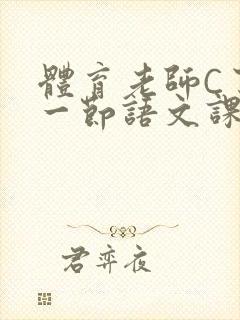 體育老師C
一節語文課
君弈夜